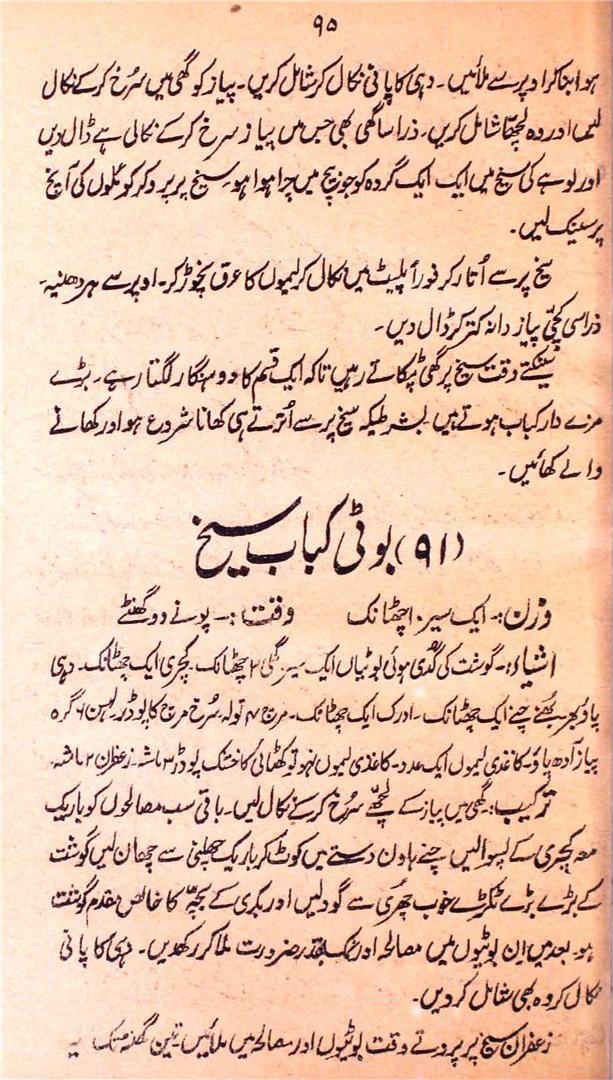 ۹۵
ہوا بنا کر اوپر سے ملائیں۔ دہی کا پانی نکال کر شامل کریں۔ پیاز کو گھی میں سُرخ کر کے نکال
لیں اور وہ لچھا شامل کریں۔ ذرا سا گھی بھی جس میں پیاز سرخ کر کے نکالی ہے ڈال دیں
اور لوہے کی سیخ میں ایک ایک گردہ کو جو بیچ میں چرا ہوا ہو۔ سیخ پر پرو کر کوئلوں کی آنچ
پر سینک لیں۔
سیخ پر سے اُتار کر فوراً پلیٹ میں نکال کر لیموں کا عرق نچوڑ کر۔ اوپر سے ہر دھنیہ۔
ذرا سی کچی پیاز دانہ کتر کر ڈال دیں۔
سینکتے وقت سیخ پر گھی ٹپکاتے رہیں تاکہ ایک قسم کا دو ہنگار لگتا رہے۔ بڑے
مزے دار کباب ہوتے ہیں بشرطیکہ سیخ پر سے اُترتے ہی کھانا شروع ہو اور کھانے
والے کھائیں۔
(۹۱) بوٹی کباب سیخ
وزن:۔ ایک سیر ۱ چھٹانک وقت:۔ پونے دو گھنٹے
اشیاء:۔ گوشت کی گُدی ہوئی بوٹیاں ایک سیر۔ گھی ۲ چھٹانک۔ کچری ایک چھٹانک۔ دہی
پاؤ بھر۔ بھُنے چنے ایک چھٹانک۔ ادرک ایک چھٹانک۔ مرچ ۴ تولہ سُرخ مرچ کا پوڈر۔ لہسن ۶ گرہ
پیاز آدھ پاؤ۔ کاغذی لیموں ایک عدد۔ کاغذی لیموں نہو تو کھٹائی کا خشک پوڈر ۳ ماشہ۔ زعفران ۲ ماشہ۔
ترکیب: گھی میں پیاز کے لچھے سُرخ کر کے نکال لیں۔ باقی سب مصالحوں کو باریک
معہ کچری کے پسوا لیں چنے ہاون دستے میں کوٹ کر باریک چھلنی سے چھان لیں گوشت
کے بڑے بڑے ٹکڑے خوب چھُری سے گود لیں اور بکری کے بچہ کا خالص مقدم گوشت
ہو۔ بعد میں ان بوٹیوں میں مصالحہ اور نمک بقدر ضرورت ملا کر رکھدیں۔ دہی کا پانی
نکال کر وہ بھی شامل کر دیں۔
زعفران سیخ پر پروتے وقت بوٹیوں اور مصالحہ میں ملائیں تین گھنٹہ تک یہ